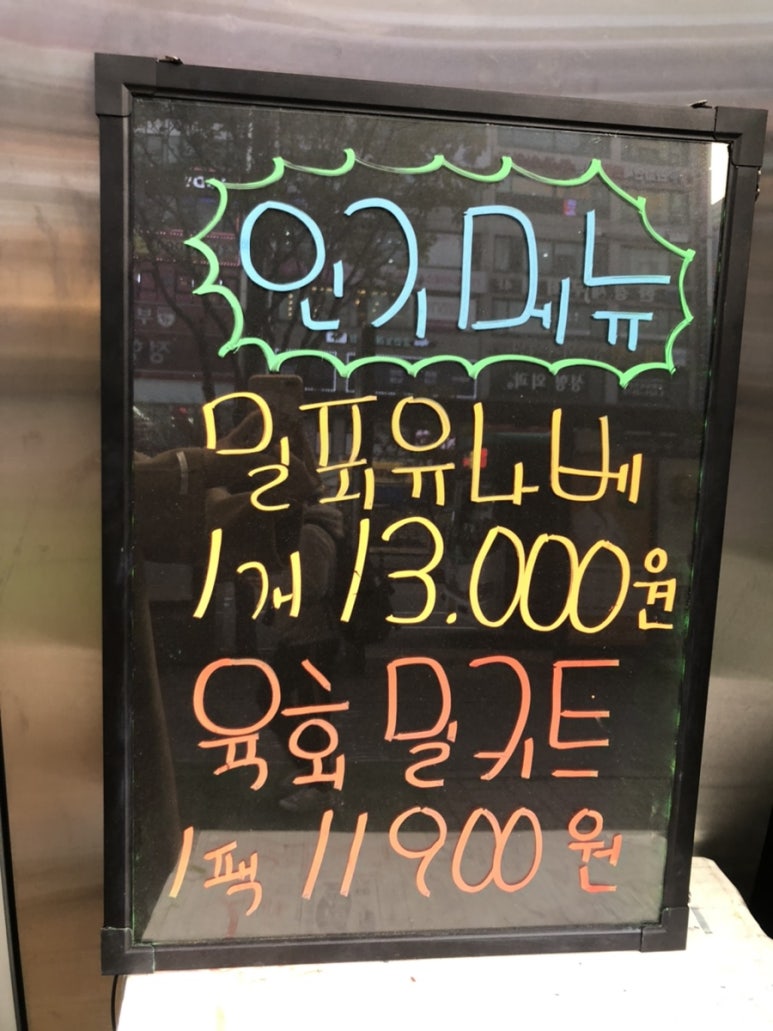 인기메뉴
밀푀유나베
1개 13.000원
육회 밀키트
1팩 11900원